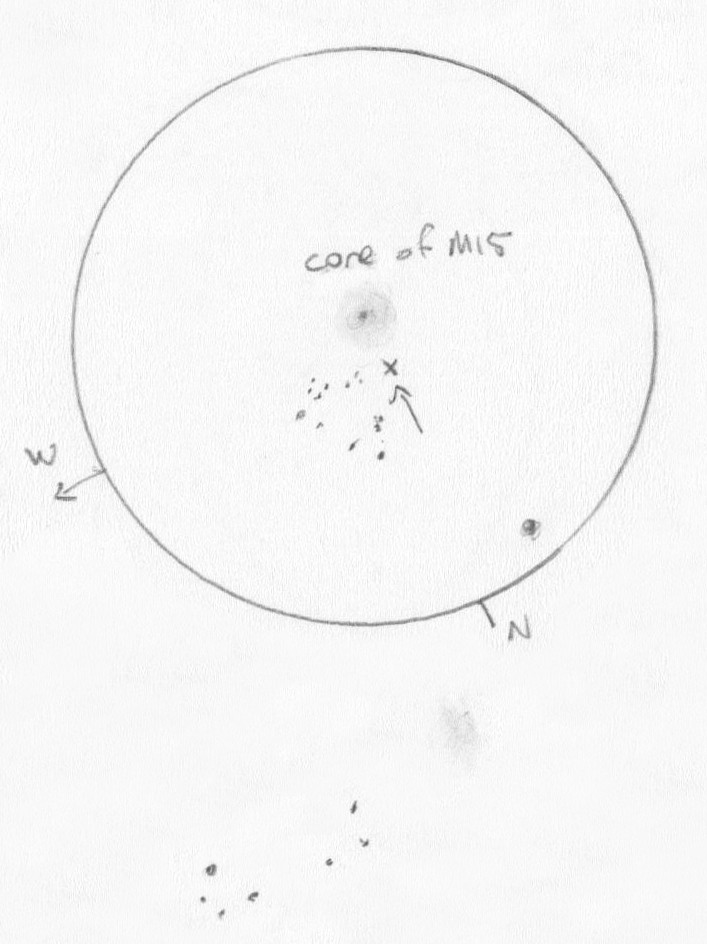 core of M15
W
N